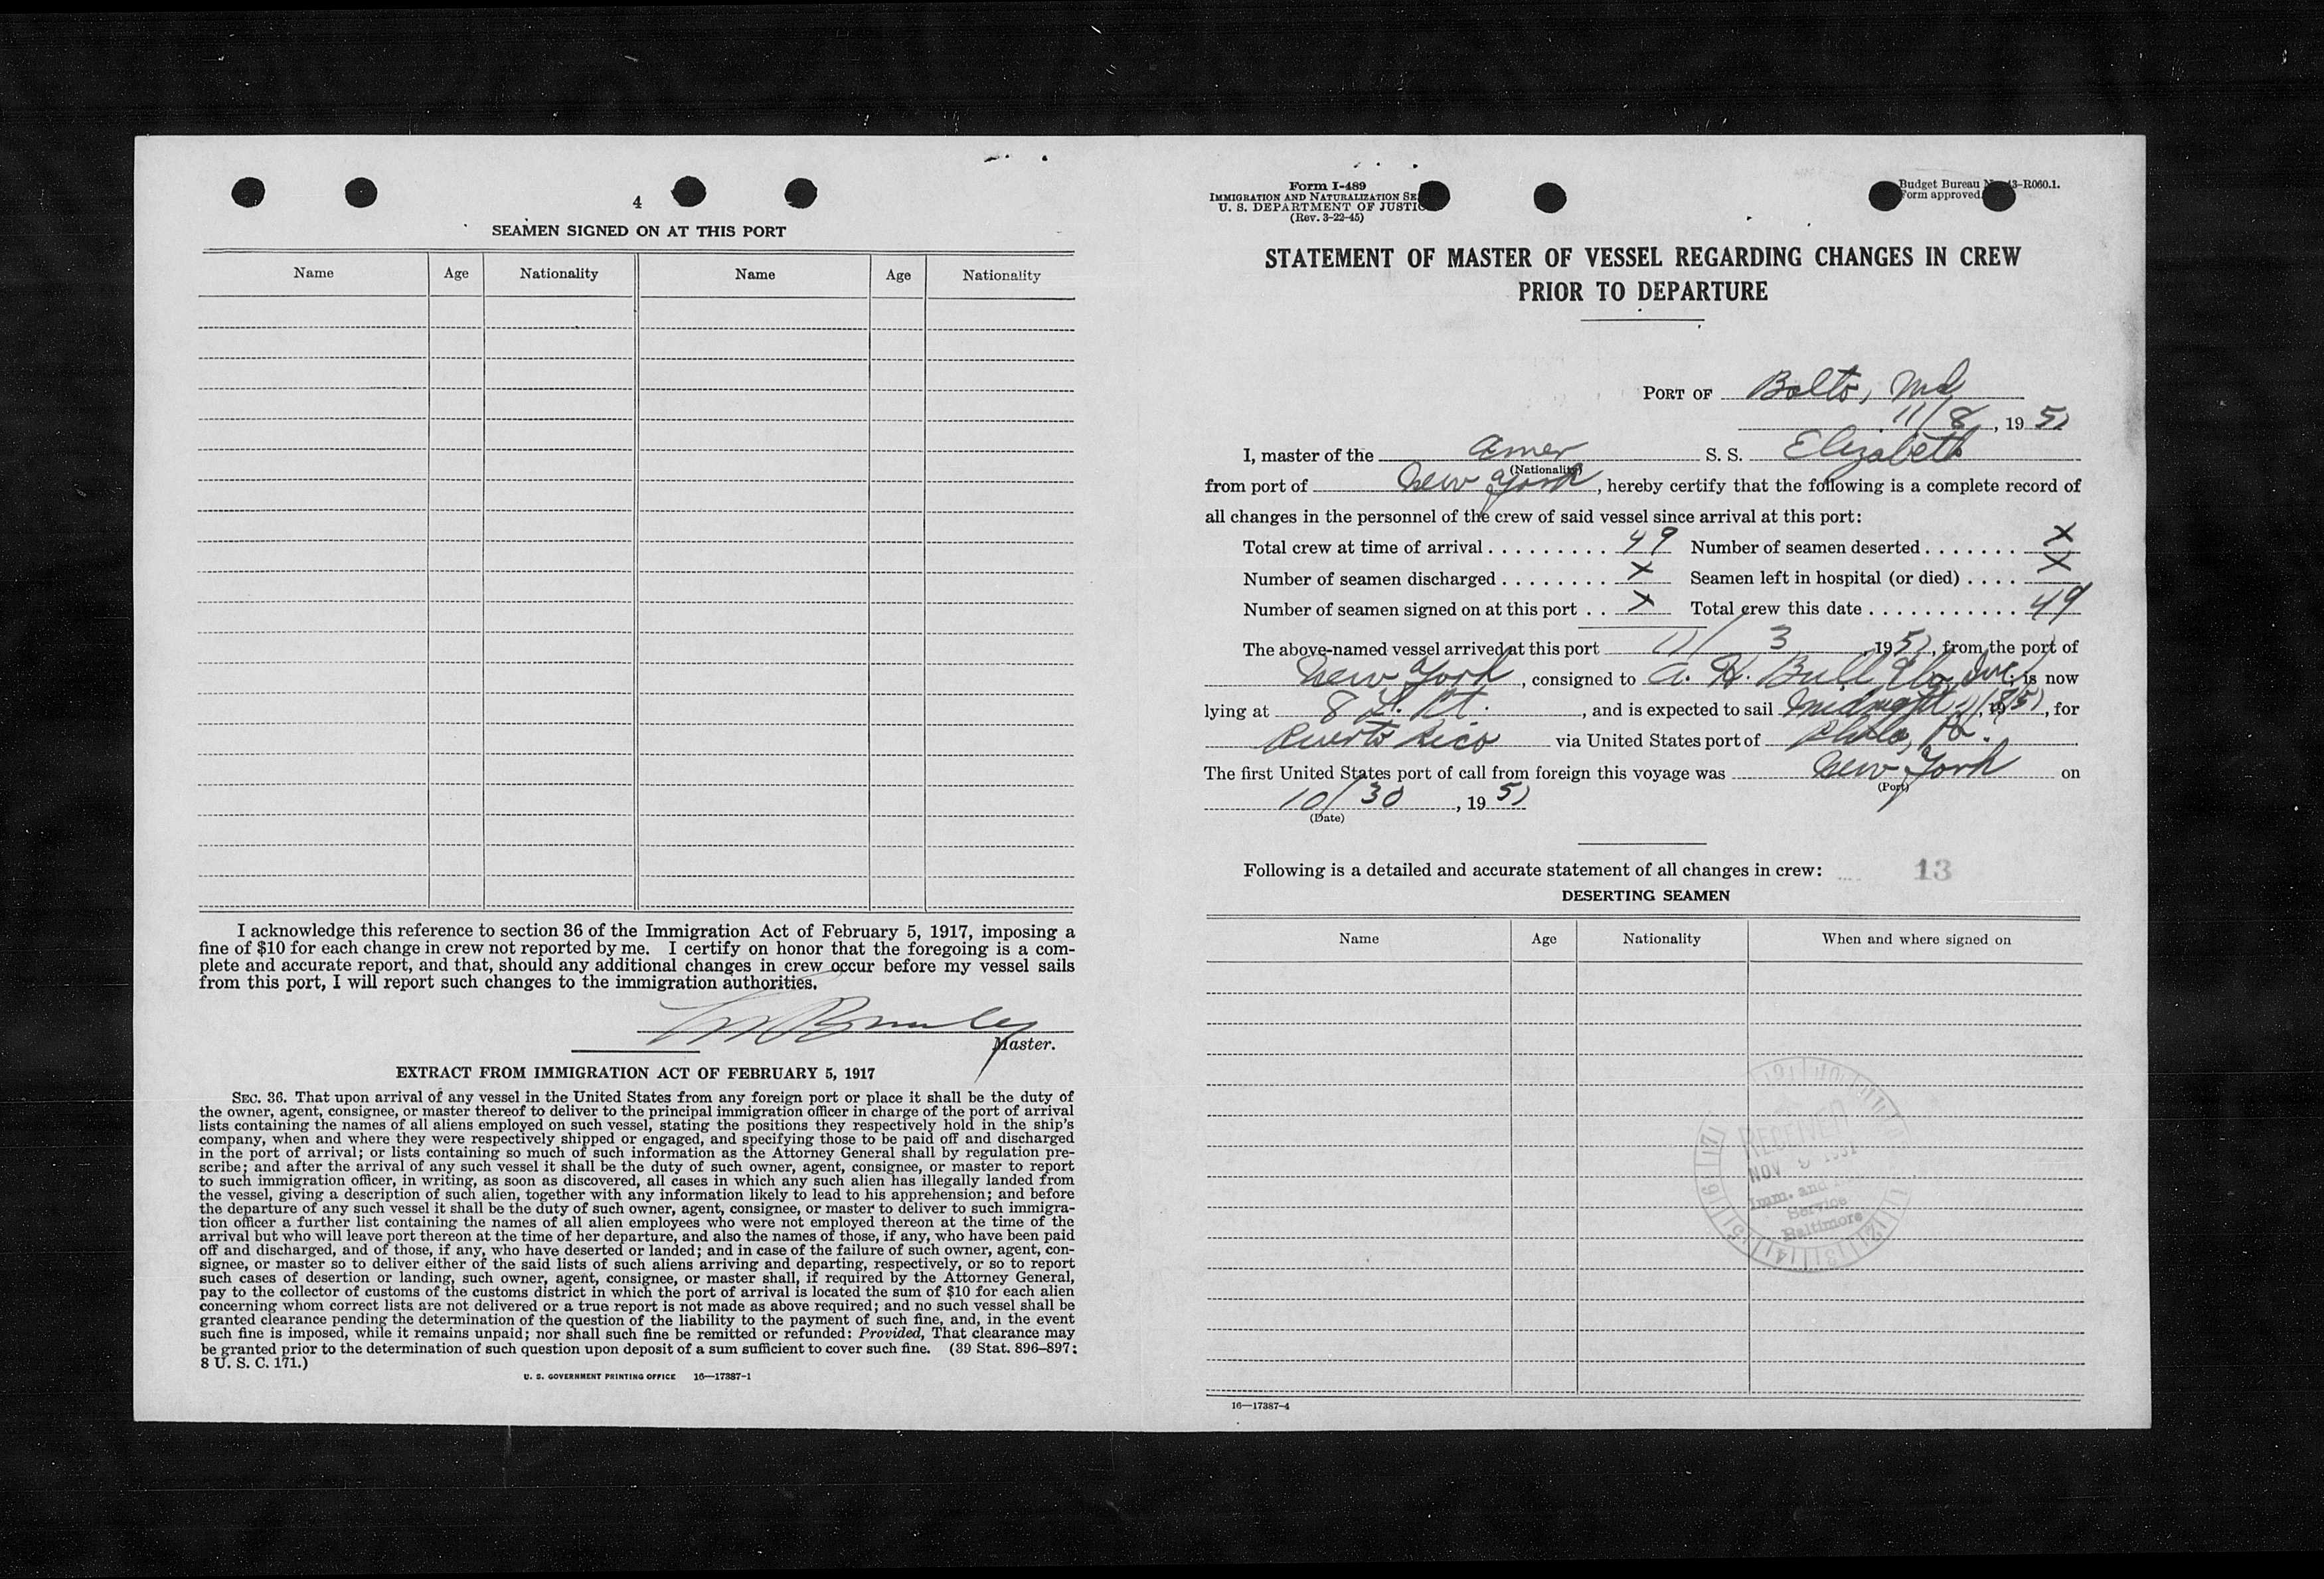 4
SEAMEN SIGNED ON AT THIS PORT
Name Age Nationality Name Age Nationality
I acknowledge this reference to section 36 of the Immigration Act of February 5, 1917, imposing a
fine of $10 for each change in crew not reported by me. I certify on honor that the foregoing is a com-
plete and accurate report, and that, should any additional changes in crew occur before my vessel sails
from this port, I will report such changes to the immigration authorities.
Master.
EXTRACT FROM IMMIGRATION ACT OF FEBRUARY 5, 1917
SEC. 36. That upon arrival of any vessel in the United States from any foreign port or place it shall be the duty of
the owner, agent, consignee, or master thereof to deliver to the principal immigration officer in charge of the port of arrival
lists containing the names of all aliens employed on such vessel, stating the positions they respectively hold in the ship's
company, when and where they were respectively shipped or engaged, and specifying those to be paid off and discharged
in the port of arrival; or lists containing so much of such information as the Attorney General shall by regulation pre-
scribe; and after the arrival of any such vessel it shall be the duty of such owner, agent, consignee, or master to report
to such immigration officer, in writing, as soon as discovered, all cases in which any such alien has illegally landed from
the vessel, giving a description of such alien, together with any information likely to lead to his apprehension; and before
the departure of any such vessel it shall be the duty of such owner, agent, consignee, or master to deliver to such immigra-
tion officer a further list containing the names of all alien employees who were not employed thereon at the time of the
arrival but who will leave port thereon at the time of her departure, and also the names of those, if any, who have been paid
off and discharged, and of those, if any, who have deserted or landed; and in case of the failure of such owner, agent, con-
signee, or master so to deliver either of the said lists of such aliens arriving and departing, respectively, or so to report
such cases of desertion or landing, such owner, agent, consignee, or master shall, if required by the Attorney General,
pay to the collector of customs of the customs district in which the port of arrival is located the sum of $10 for each alien
concerning whom correct lists are not delivered or a true report is not made as above required; and no such vessel shall be
granted clearance pending the determination of the question of the liability to the payment of such fine, and, in the event
such fine is imposed, while it remains unpaid; nor shall such fine be remitted or refunded: Provided, That clearance may
be granted prior to the determination of such question upon deposit of a sum sufficient to cover such fine. (39 Stat. 896–897;
8 U. S. C. 171.)
U. S. GOVERNMENT PRINTING OFFICE 16—17387-1
Form I-489
IMMIGRATION AND NATURALIZATION
U. S. DEPARTMENT OF JUSTIC
(Rev. 3-22-45)
Budget Bureau 43-R060.1.
Form approved.
STATEMENT OF MASTER OF VESSEL REGARDING CHANGES IN CREW
PRIOR TO DEPARTURE
PORT OF Balto, Md
11/8, 1951
I, master of the Amer S. S. Elizabeth
(Nationality)
from port of New York, hereby certify that the following is a complete record of
all changes in the personnel of the crew of said vessel since arrival at this port:
Total crew at time of arrival . . . . . . . . . 49 Number of seamen deserted . . . . . . . X
Number of seamen discharged . . . . . . . . X Seamen left in hospital (or died) . . . . X
Number of seamen signed on at this port . . X Total crew this date . . . . . . . . . . . . 49
The above-named vessel arrived at this port 11/3, 1951, from the port of
New York, consigned to A. H. Bull & Co, Inc; is now
lying at 8 Lt. St., and is expected to sail Midnight 11/8, 1951, for
Puerto Rico via United States port of Phila, Pa.
The first United States port of call from foreign this voyage was New York on
(Port)
10/30, 1951
(Date)
Following is a detailed and accurate statement of all changes in crew: 13
DESERTING SEAMEN
Name Age Nationality When and where signed on
RECEIVED
NOV
Imm. and
Service
Baltimore
16—17387-4